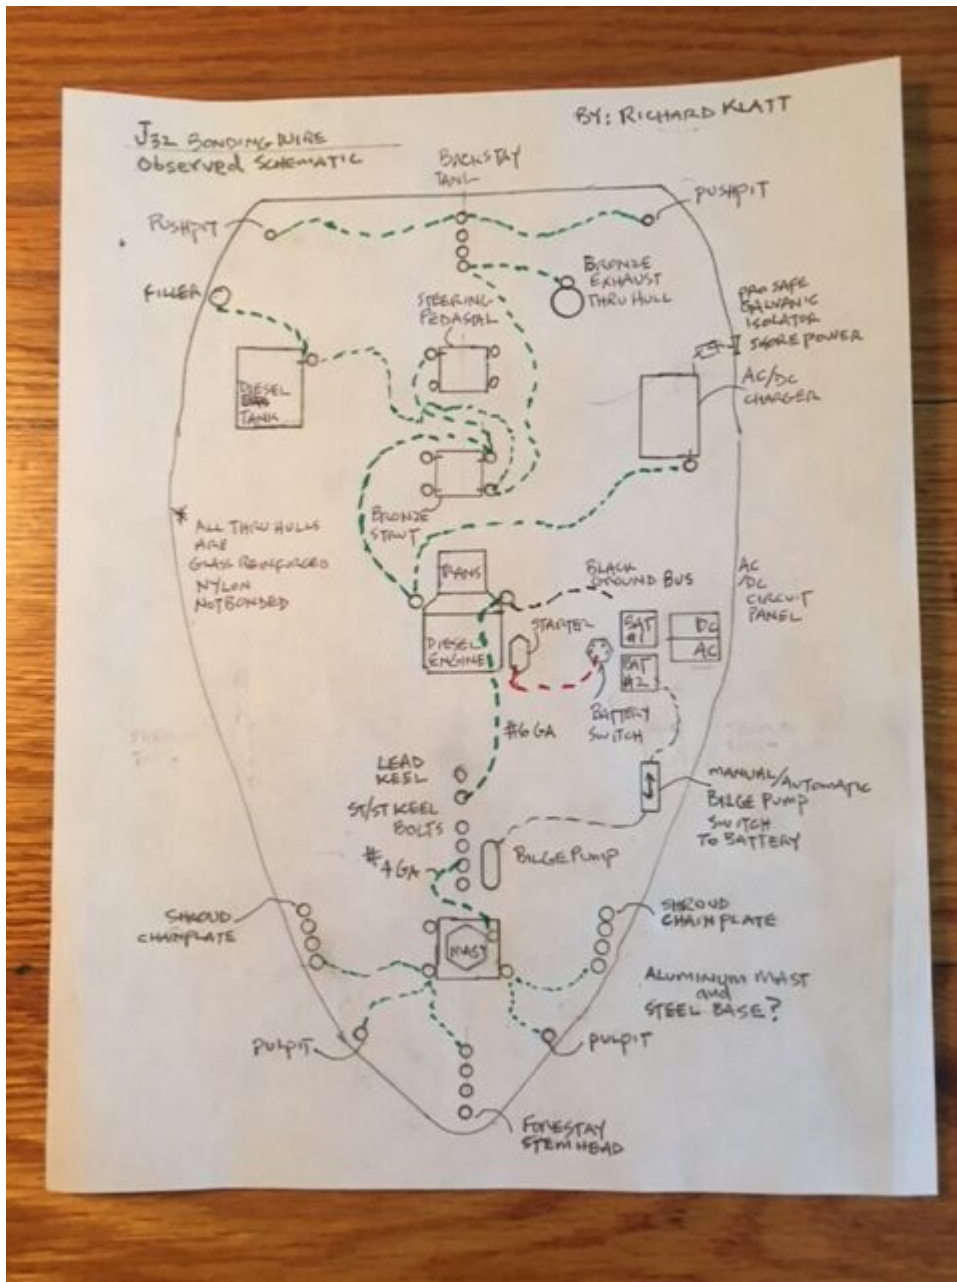 J32 BONDING WIRE
Observed SCHEMATIC
BY: RICHARD KLATT
BACKSTAY
TANG
PUSHPIT
PUSHPIT
FILLER
STEERING
PEDASTAL
BRONZE
EXHAUST
THRU HULL
PRO SAFE
GALVANIC
ISOLATOR
SHORE POWER
AC/DC
CHARGER
DIESEL
TANK
BRONZE
STRUT
* ALL THRU HULLS
ARE
GLASS REINFORCED
NYLON
NOT BONDED
TRANS
BLACK
GROUND BUS
AC
/DC
CIRCUIT
PANEL
DIESEL
ENGINE
STARTER
BAT
#1
BAT
#2
DC
AC
#6 GA
BATTERY
SWITCH
LEAD
KEEL
ST/ST KEEL
BOLTS
#4 GA
BILGE PUMP
MANUAL/AUTOMATIC
BILGE PUMP
SWITCH
TO BATTERY
SHROUD
CHAINPLATE
SHROUD
CHAINPLATE
MAST
ALUMINUM MAST
and
STEEL BASE?
PULPIT
PULPIT
FORESTAY
STEM HEAD